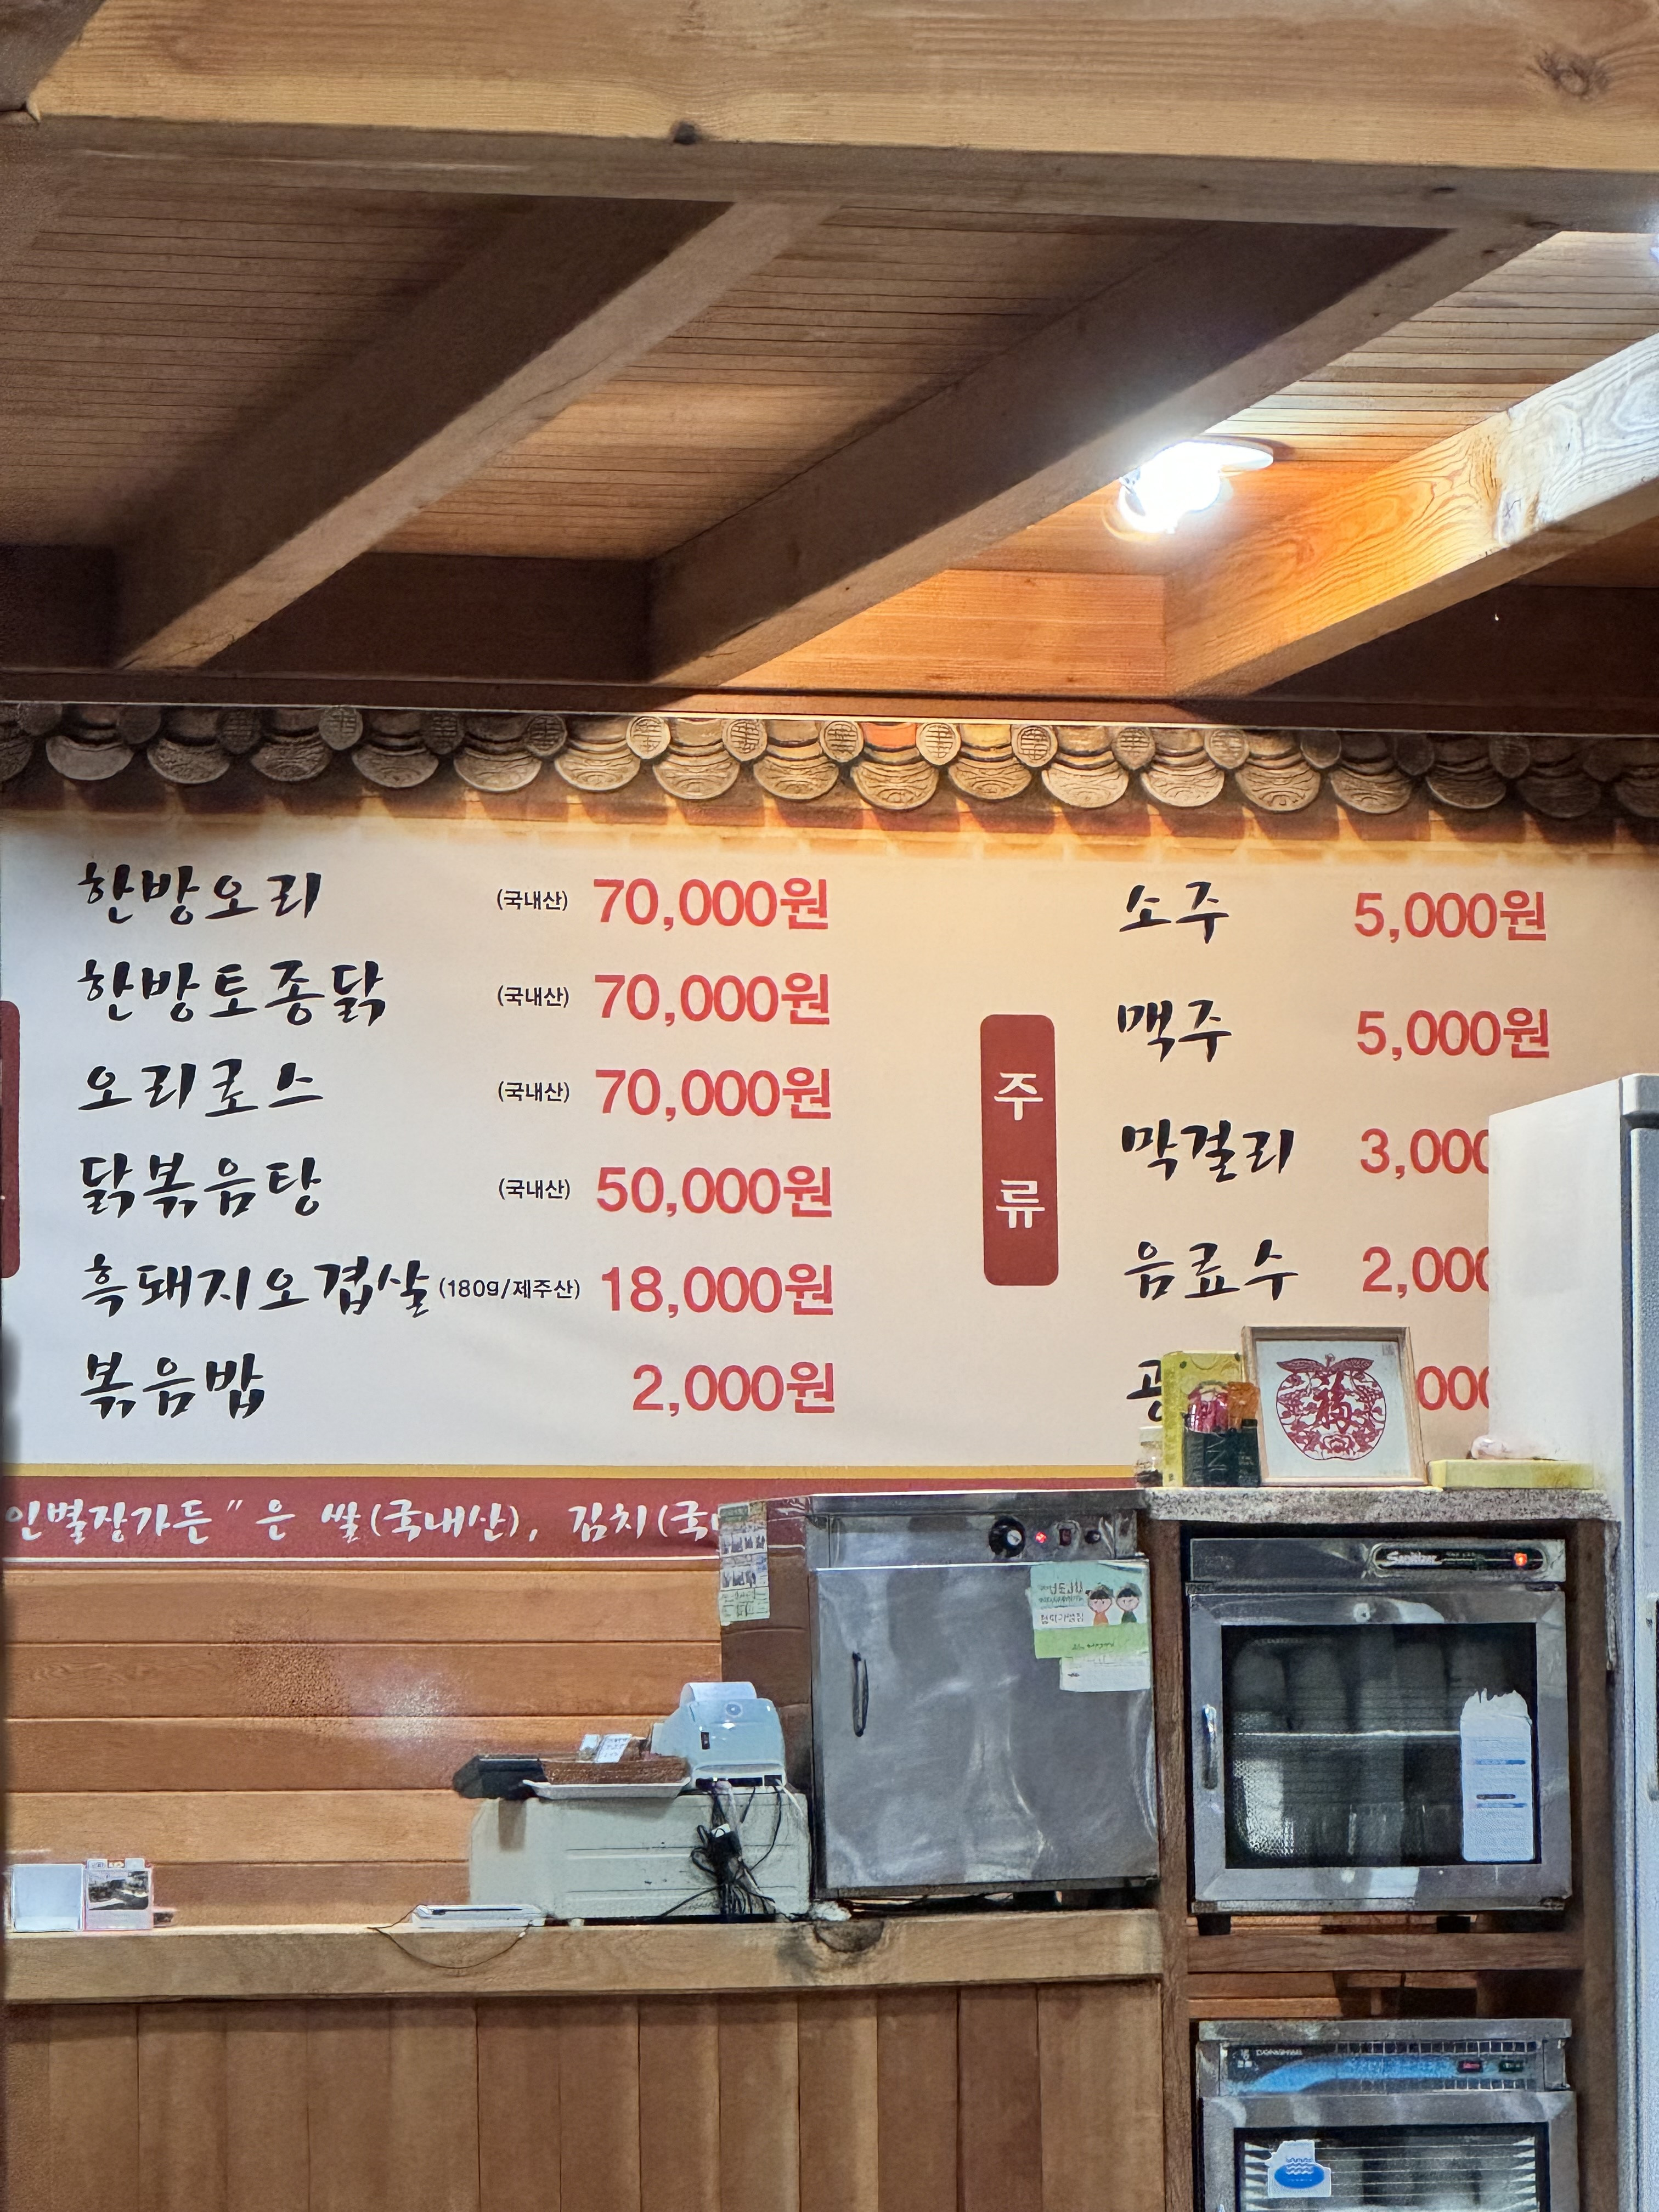 한방오리 (국내산) 70,000원
한방토종닭 (국내산) 70,000원
오리로스 (국내산) 70,000원
닭볶음탕 (국내산) 50,000원
흑돼지오겹살 (180g/제주산) 18,000원
볶음밥 2,000원
주류
소주 5,000원
맥주 5,000원
막걸리 3,000
음료수 2,000
인별장가든" 은 쌀(국내산), 김치(국
福
Sanitizer